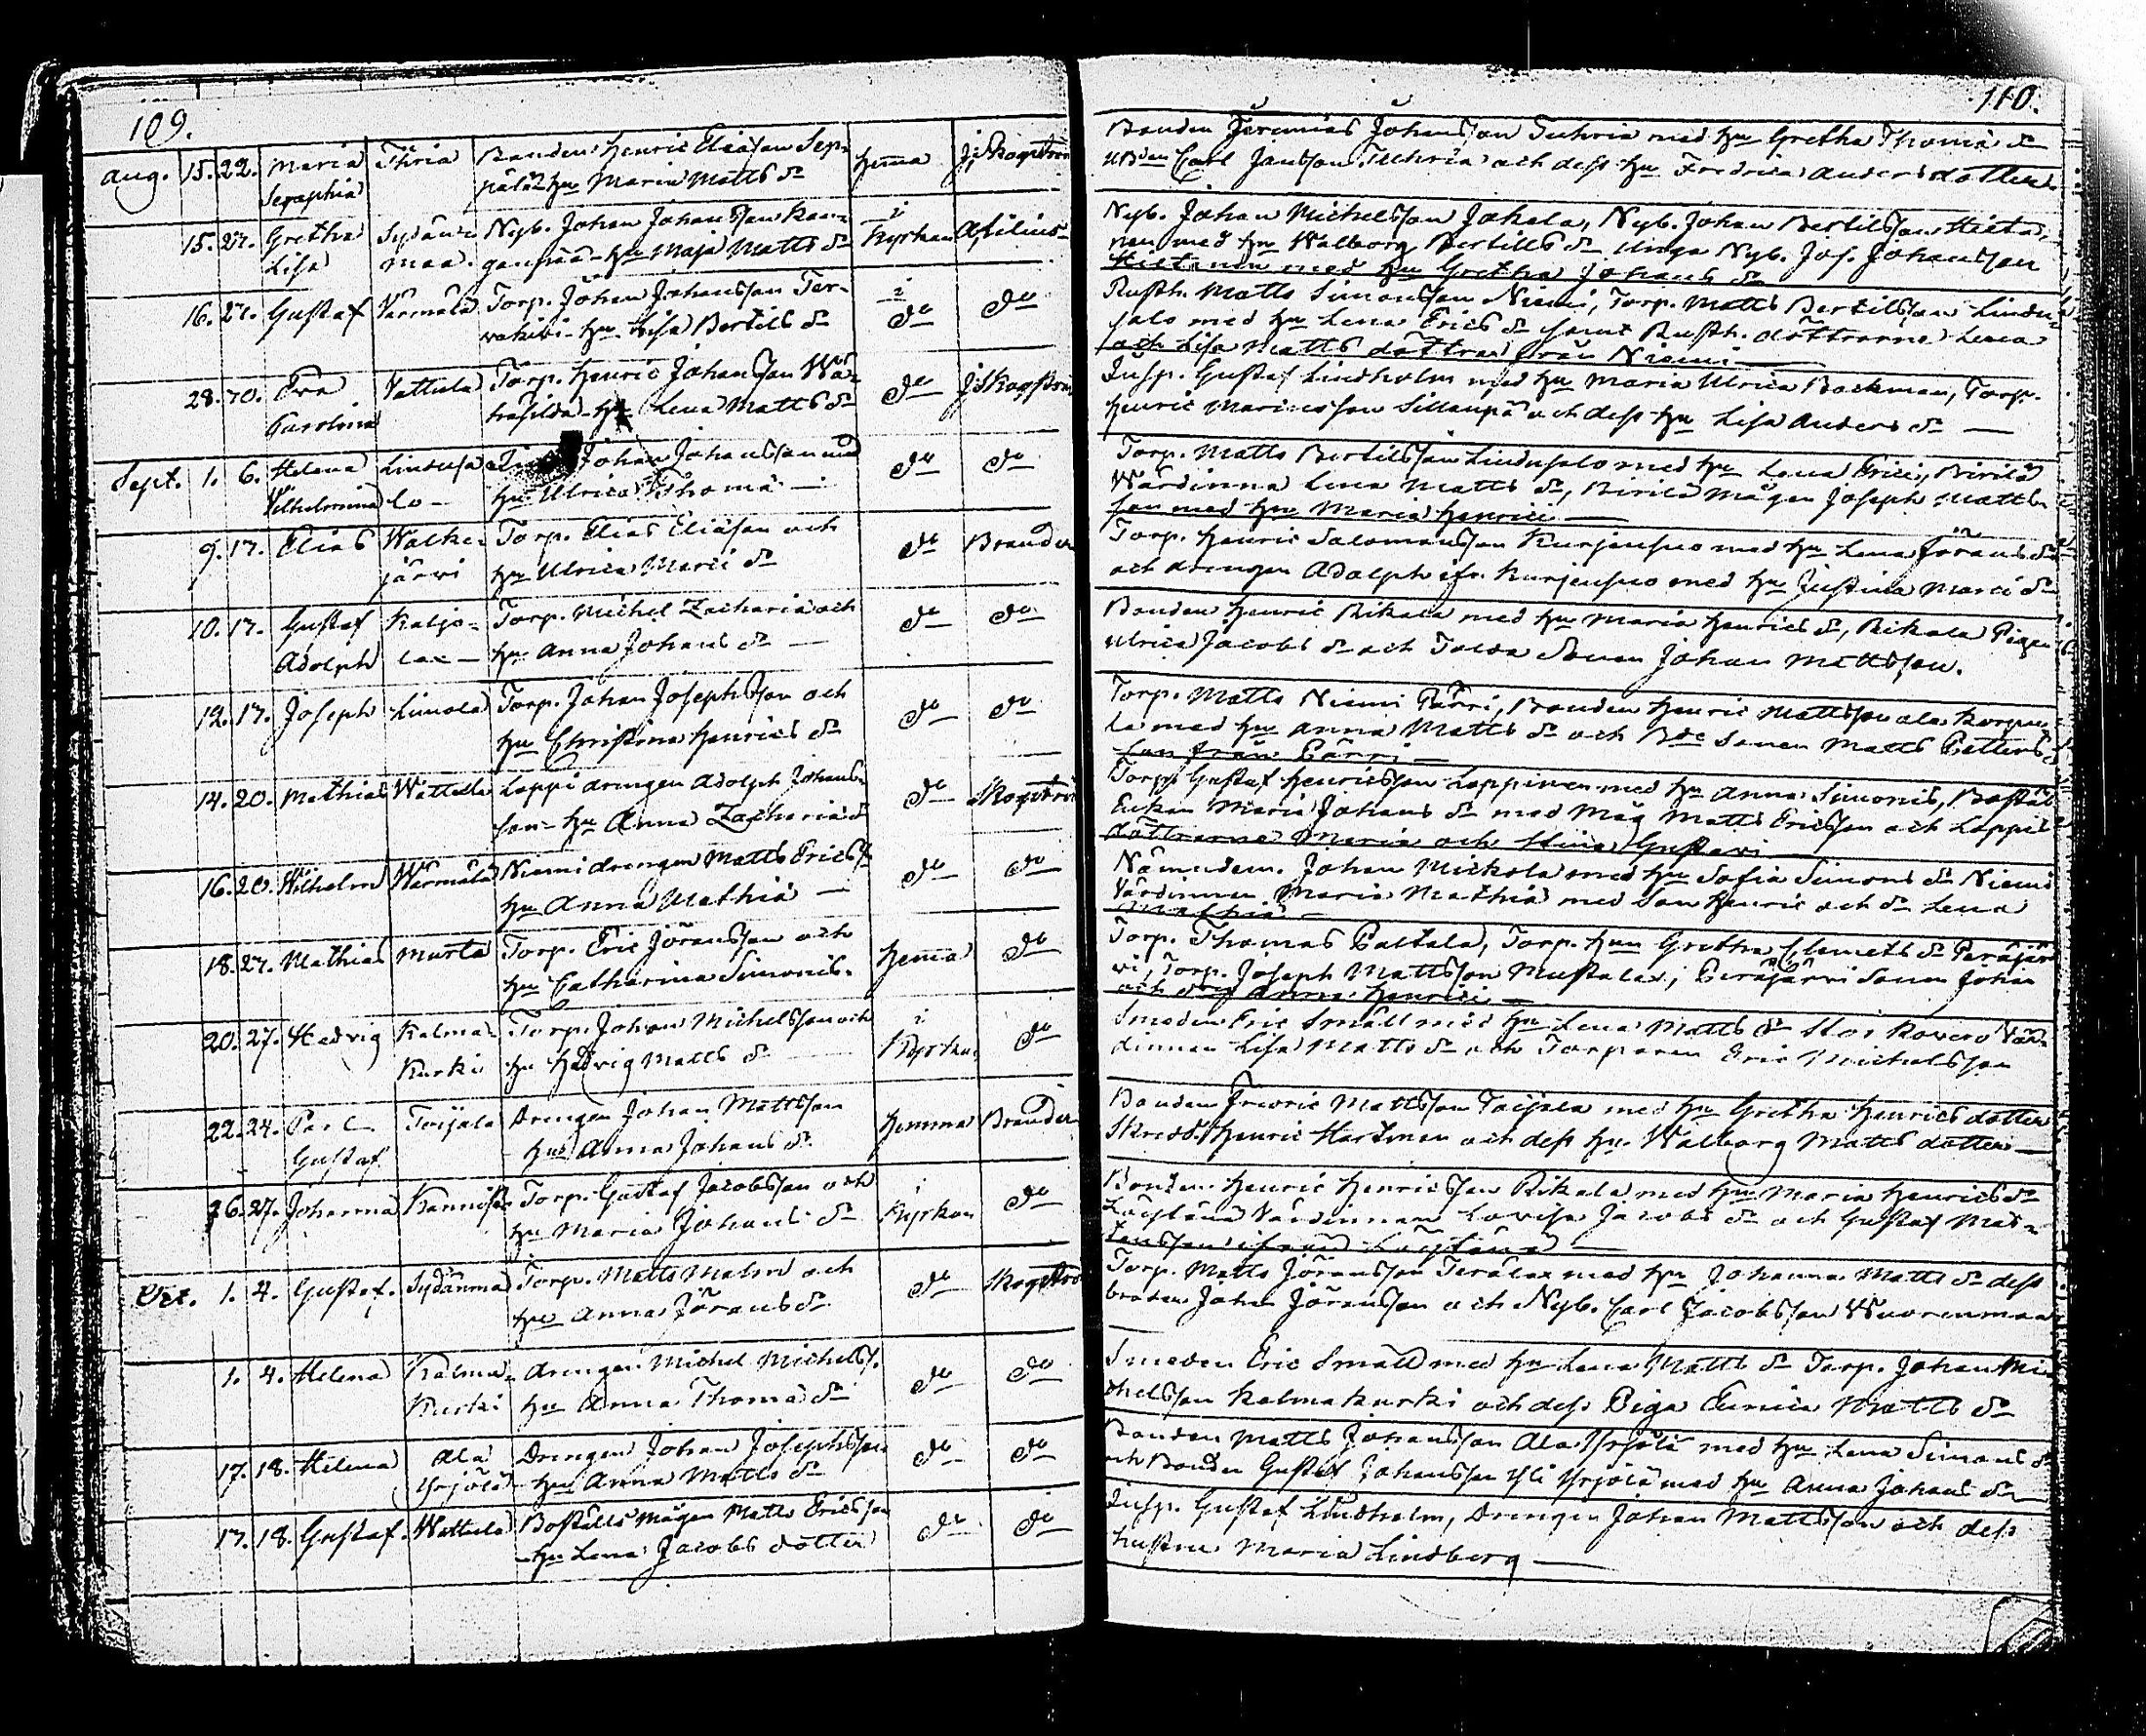 109.
Aug. 15. 22. Maria Thria Bonden Henric Eliasson Sep- hemma J. Skogström
Seraphia pälä hu Maria Matts dr
15. 27. Gretha Sydän- Nyb. Johan Johansson Kan- i
Lisa maa. ganpää - hu Maja Matts dr Kyrkan Asilius
16. 27. Gustaf Värmälä Torp. Johan Johansson Ter- i
vakivi - hu Lisa Bertils dr do do
28. 30. Eva Vattula Torp. Henric Johansson Wä- do J. Skogström
Carolina häsilda - hu Lena Matts dr
Sept. 1. 6. Helena Lindusa Johan Johansson med do do
Wilhelmina lo - hu Ulrica Thomæ -
9. 17. Elias Walke- Torp. Elias Eliasson och do Brander
järvi hu Ulrica Marci dr
10. 17. Gustaf Kaljo- Torp. Michel Zachariæ och do do
Adolph hu Anna Johans dr -
12. 17. Joseph Limola Torp. Johan Josephsson och do do
hu Christina Henrics dr
14. 20. Mathias Wattula Loppi drengen Adolph Johans- do Skogström
son - hu Anna Zachariæ dr
16. 20. Wilhelm Wärmälä Niemi drengen Matts Erics s. do do
hu Anna Mathiæ -
18. 27. Mathias Murto Torp. Eric Jöransson och hemma do
hu Catharina Simonis.
20. 27. Hedvig Kalma- Torp. Johan Michelsson och i do
Kurki hu Hedvig Matts dr Kyrkan
22. 24. Carl Toijala Drengen Johan Mattsson hemma Brander
Gustaf hu Anna Johans dr
26. 27. Johanna Kannisto Torp. Gustaf Jacobsson och i do
hu Maria Johans dr Kyrkan
Oct. 1. 4. Gustaf. Sydänma Torp. Matts Malm och do Skogström
hu Anna Jörans dr
1. 4. Helena Kalma- drengen Michel Michels s. do do
Kurki hu Anna Thomæ dr
17. 18. Helena Ala Drengen Johan Josephsson do do
Yrjölä hu Anna Matts dr
17. 18. Gustaf. Wattula Boställs mågen Matts Ericsson do do
- hu Lena Jacobs dotter
110.
Bonden Jeremias Johansson Tuhria med hu Gretha Thomæ dr
Carl Jansson Tuhria och dess hu Fredrica Anders dotter
Nyb. Johan Michelsson Jokela, Nyb. Johan Bertilsson Hieta-
nen med hu Walborg Bertils dr Unga Nyb. Jos. Johansson
Hietanen med hu Gretha Johans dr
Rusth. Matts Simonsson Niemi, Torp. Matts Bertilsson Lindu-
salo med hu Lena Erics dr samt Rusth. döttrarne Lena
och Lisa Matts döttrar från Niemi
Insp. Gustaf Lindholm med hu Maria Ulrica Backman, Torp.
Henric Maricsson Sillanpä och dess hu Lisa Anders dr -
Torp. Matts Bertilsson Lindusalo med hu Lena Erici, Pirilä
Wärdinna Lena Matts dr, Pirilä Mågen Joseph Matts-
son med hu Maria Henrici -
Torp. Henric Salomonsson Kurjensuo med hu Lena Jörans dr
och drengen Adolph ifr. Kurjensuo med hu Justina Marci dr
Bonden Henric Rikala med hu Maria Henrics dr, Rikala Pigan
Ulrica Jacobs dr och Sonen Johan Mattsson.
Torp. Matts Niemi Pärri, Bonden Henric Mattsson ala Korpu
la med hu Anna Matts dr och Bde Sonen Matts Petters-
son från Pärri -
Torp. Gustaf Henricsson Loppinen med hu Anna Simonis, Boställ
Enkan Maria Johans dr med Måg Matts Ericsson och Loppi
döttrarne Maria och Stina Gustavi
Nämndem. Johan Mickola med hu Sofia Simons dr Niemi
Värdinnan Maria Mathiæ med Son Henric och dr Lena
Mathiæ -
Torp. Thomas Paltala, Torp. hun Gretha Clemets dr Peräjär
vi, Torp. Joseph Mattsson Mustala, Peräjärvi Sonen Johan
och Anna Henrici -
Smeden Eric Småll med hu Lena Matts dr Stor Rovero Vär-
dinnan Lisa Matts dr och Torparen Eric Michelsson
Bonden Fredric Mattsson Toijala med hu Gretha Henrics dotter
Skredd. Henric Hartman och dess hu Walborg Matts dotter -
Bonden Henric Henricsson Rikala med hu Maria Henrics dr
Värdinnan Lovisa Jacobs dr och Gustaf Mar-
tensson ifrån
Torp. Matts Jöransson Terälax med hu Johanna Matts dr dess
broder Johan Jöransson och Nyb. Carl Jacobsson Wuorenmaa
Smeden Eric Småll med hu Lena Matts dr Torp. Johan Mi-
chelsson Kalmakurki och dess Piga Eunica Matts dr
Bonden Matts Johansson Ala Yrjölä med hu Lena Simons dr
och Bonden Gustaf Johansson Yli Yrjölä med hu Anna Johans dr
Insp. Gustaf Lindholm, Drengen Johan Mattsson och dess
hustru Maria Lindberg -